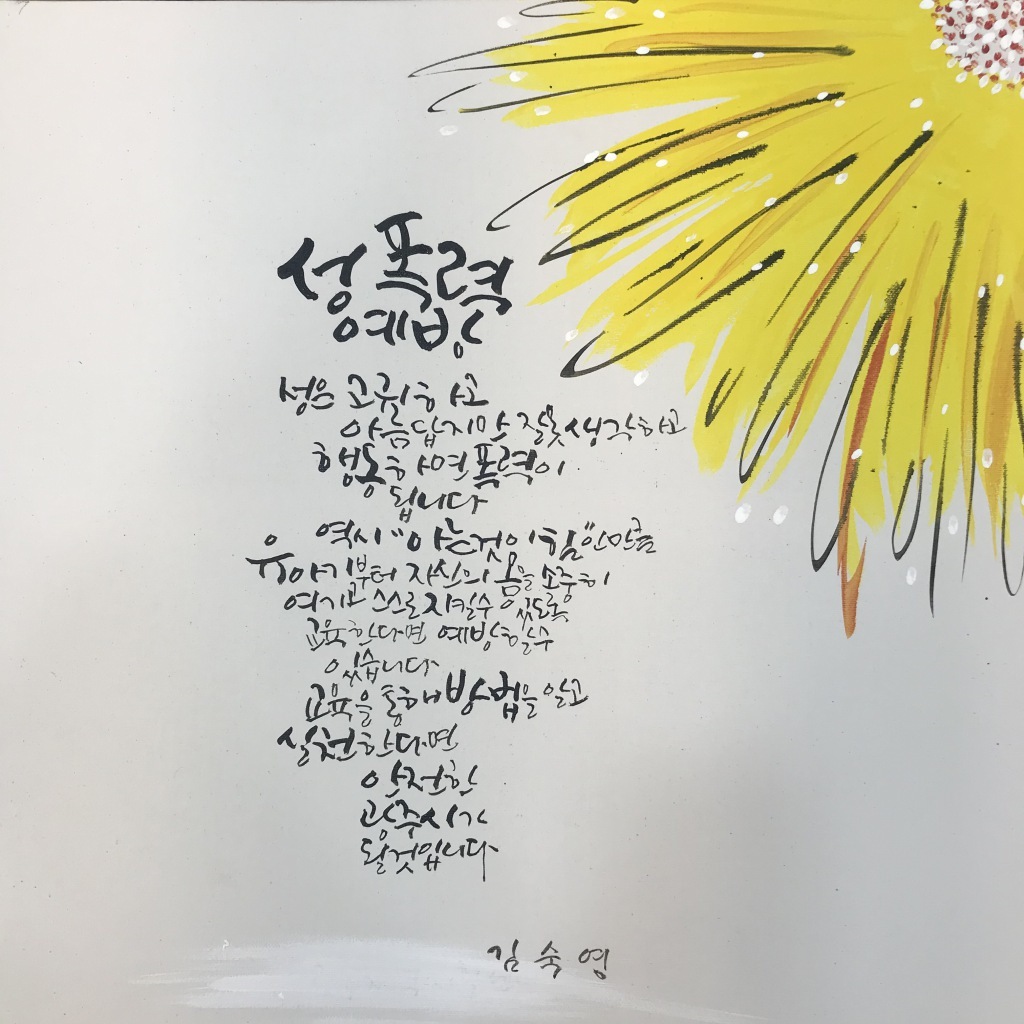 성폭력
예방
성은 고귀하고
아름답지만 잘못 생각하고
행동하면 폭력이
됩니다
역시 "아는것이 힘"인만큼
유아기부터 자신의 몸을 소중히
여기고 스스로 지킬수 있도록
교육한다면 예방할수
있습니다
교육을 통해 방법을 알고
실천한다면
안전한
광주시가
될것입니다
김숙영